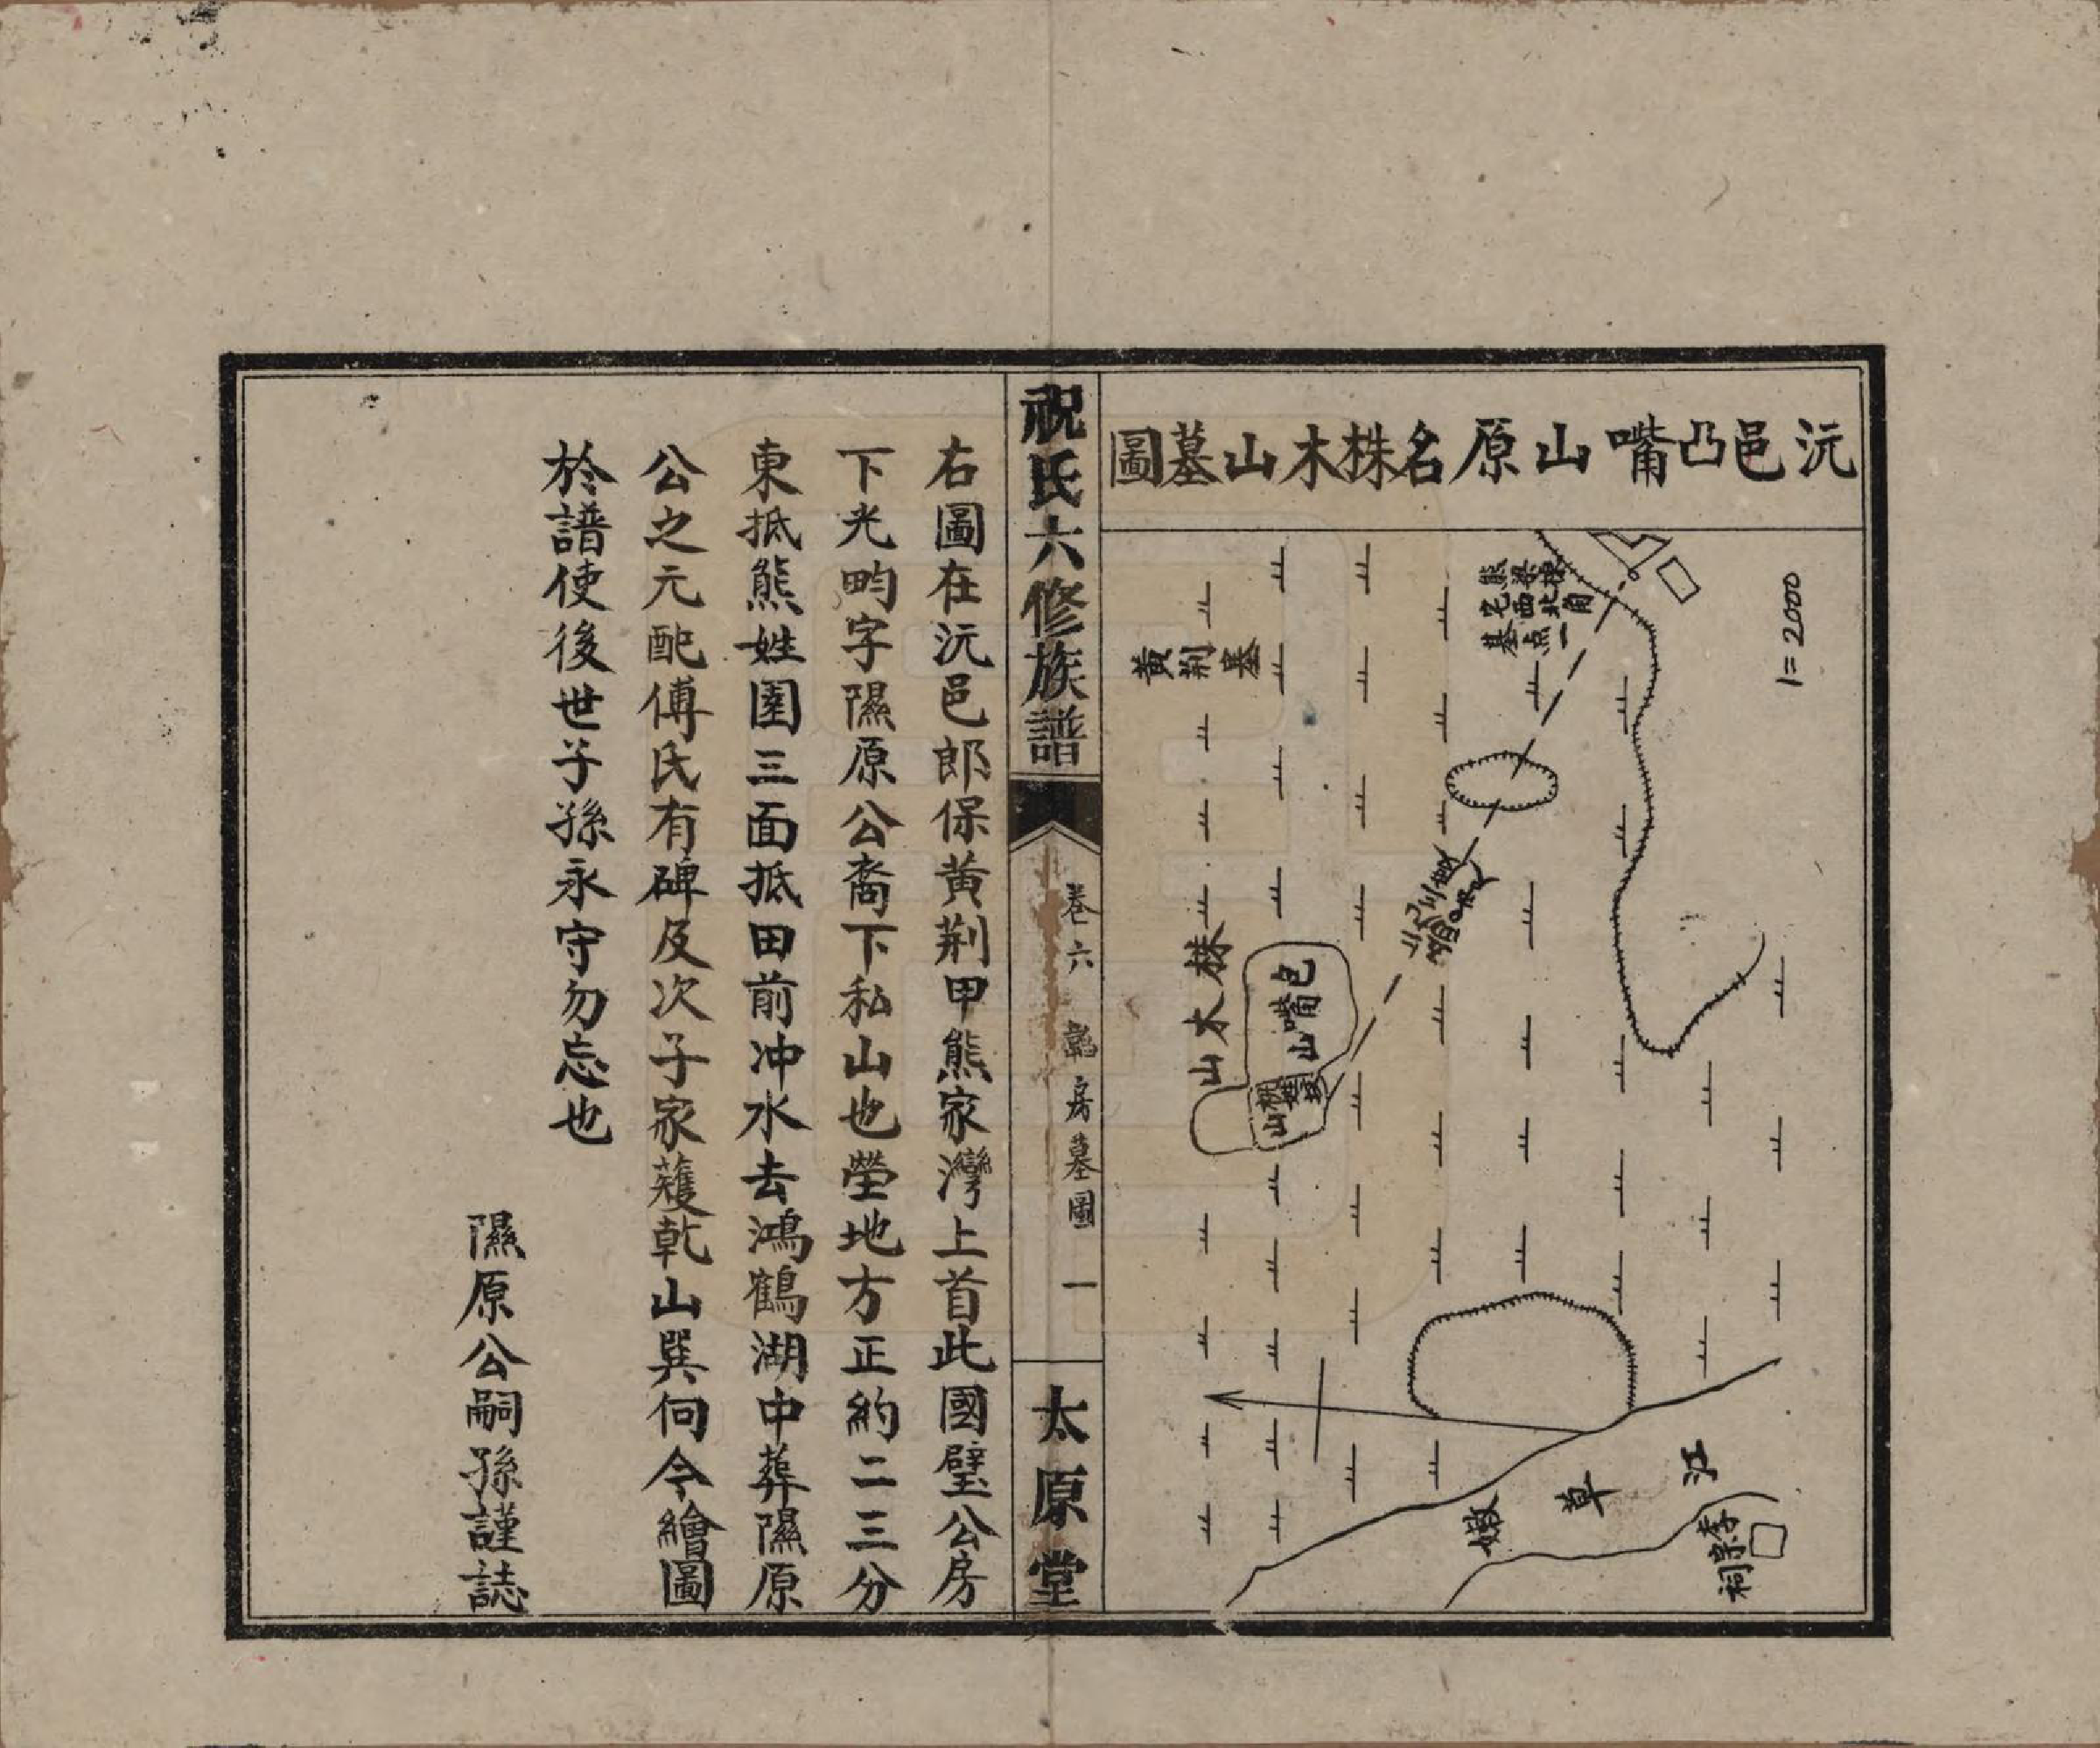 沅邑凸嘴山原名株木山墓圖
1=2000
熊桑棣
宅西北角
基点一
黄荆墓
株木山
包嘴山
嫩草江
李宗祠
祝氏六修族譜
卷六
房墓圖
一
太原堂
右圖在沅邑郎保黄荆甲熊家灣上首此國璧公房
下光畇字隰原公裔下私山也塋地方正約二三分
東抵熊姓園三面抵田前冲水去鴻鶴湖中葬隰原
公之元配傅氏有碑及次子家蒦乾山巽向今繪圖
於譜使後世子孫永守勿忘也
隰原公嗣孫謹誌